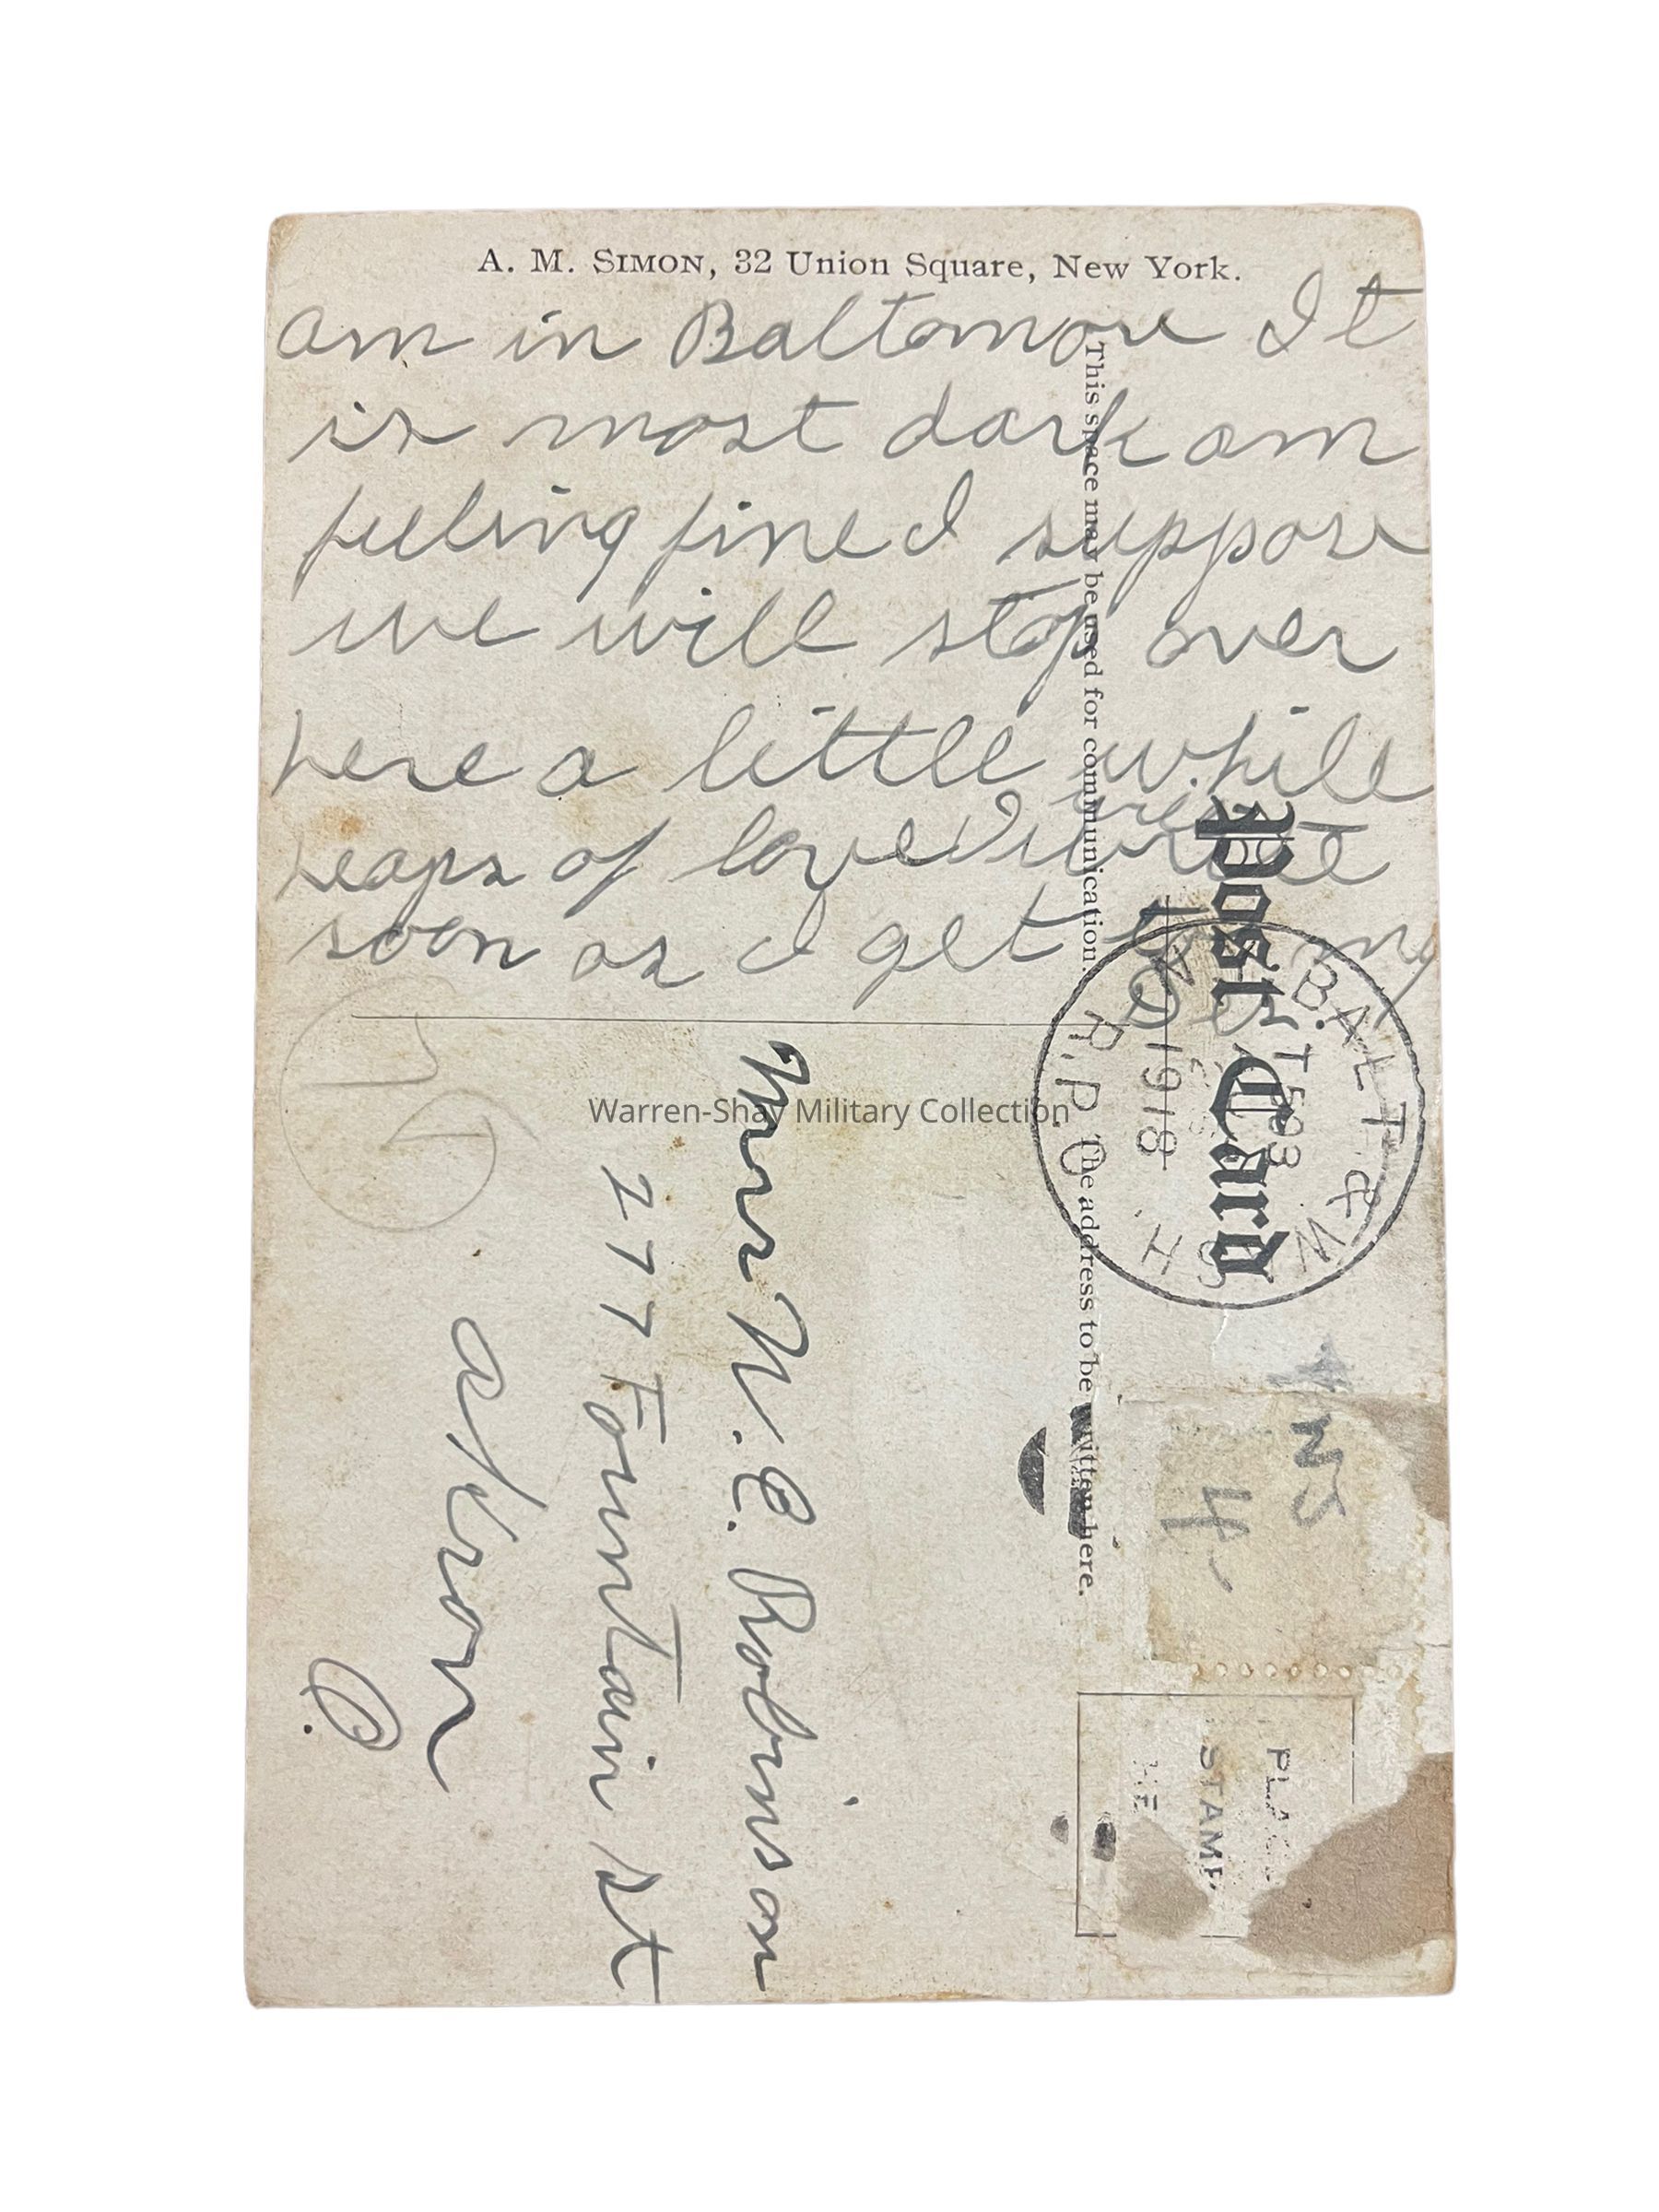 A. M. SIMON, 32 Union Square, New York.
am in Baltomore It
is most dark am
feeling fine I suppose
we will stop over
here a little while
heaps of love write
soon as I get to my
This space may be used for communication.
The address to be written here.
Post Card
BALT. & WASH.
T 593
1918
R.P.O.
PLACE
STAMP
Mrs N. E. Robinson
277 Fountain st
akron
O.
Warren-Shay Military Collection